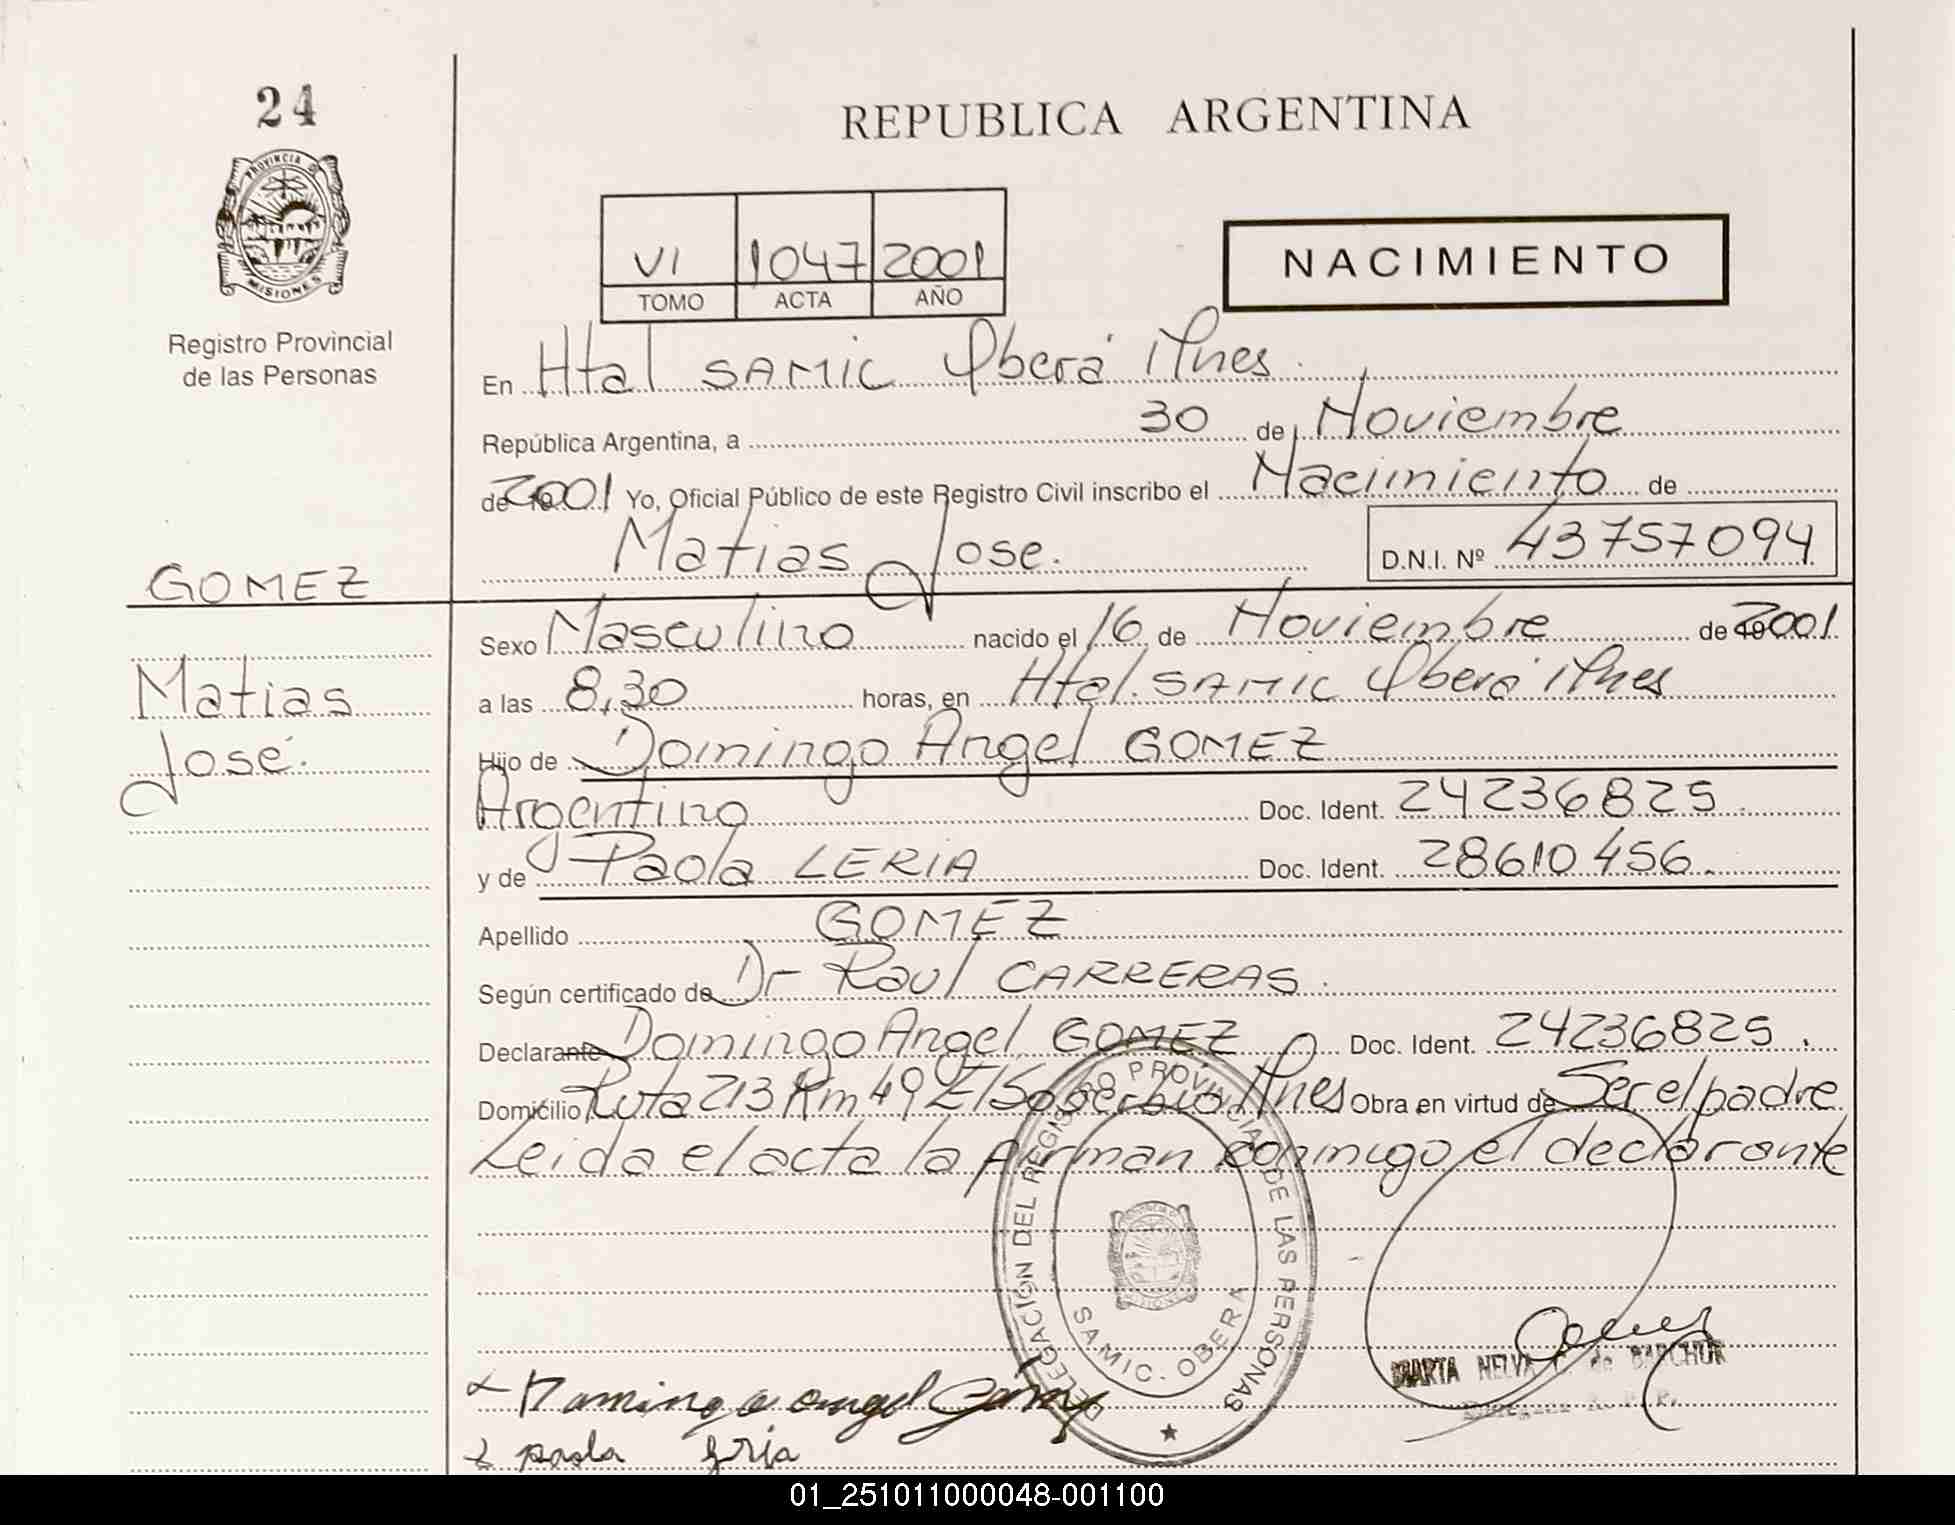 24
REPUBLICA ARGENTINA
PROVINCIA D
MISIONES
Registro Provincial
de las Personas
VI 1047 2001
TOMO ACTA AÑO
NACIMIENTO
En Htal SAMIC Oberá Mnes.
República Argentina, a 30 de Noviembre
de 2001 Yo, Oficial Público de este Registro Civil inscribo el Nacimiento de
Matias Jose.
D.N.I. Nº 43757094
GOMEZ
Matias
José.
Sexo Masculino nacido el 16 de Noviembre de 2001.
a las 8,30 horas, en Htal. SAMIC Oberá Mnes
Hijo de Domingo Angel GOMEZ
Argentino Doc. Ident. 24236825.
y de Paola LERIA Doc. Ident. 28610456.
Apellido GOMEZ
Según certificado de Dr Raul CARRERAS.
Declarante Domingo Angel GOMEZ Doc. Ident. 24236825.
Domicilio Ruta 213 Km 49 El Soberbio Mnes Obra en virtud de Ser el padre
Leida el acta la firman conmigo el declarante
DELEGACIÓN DEL REGISTRO PROVINCIAL DE LAS PERSONAS
SAMIC. OBERA
MARTA NELVA C. de BARCHUK
Domingo angel Gomez
paola leria
01_251011000048-001100